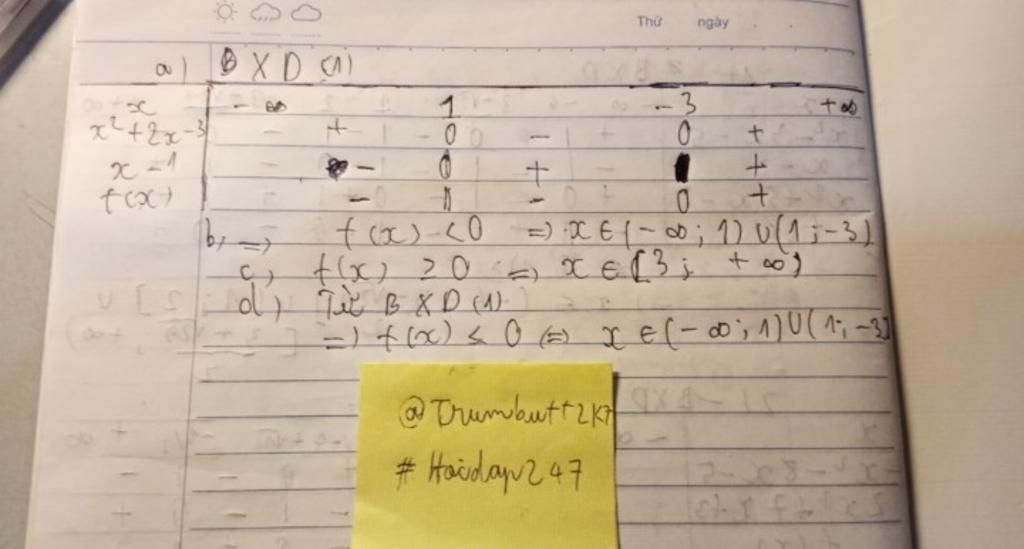 Thứ ngày
a) BXD (1)
x -∞ 1 -3 +∞
x²+2x-3 + 0 - 0 +
x-1 - 0 + | +
f(x) - || - 0 +
b, => f(x) < 0 => x ∈ (-∞; 1) ∪ (1; -3)
c, f(x) ≥ 0 => x ∈ [3; +∞)
d) Từ BXD (1)
=> f(x) ≤ 0 <=> x ∈ (-∞; 1) ∪ (1; -3]
@Trumbutt2k7
#Hoidap247